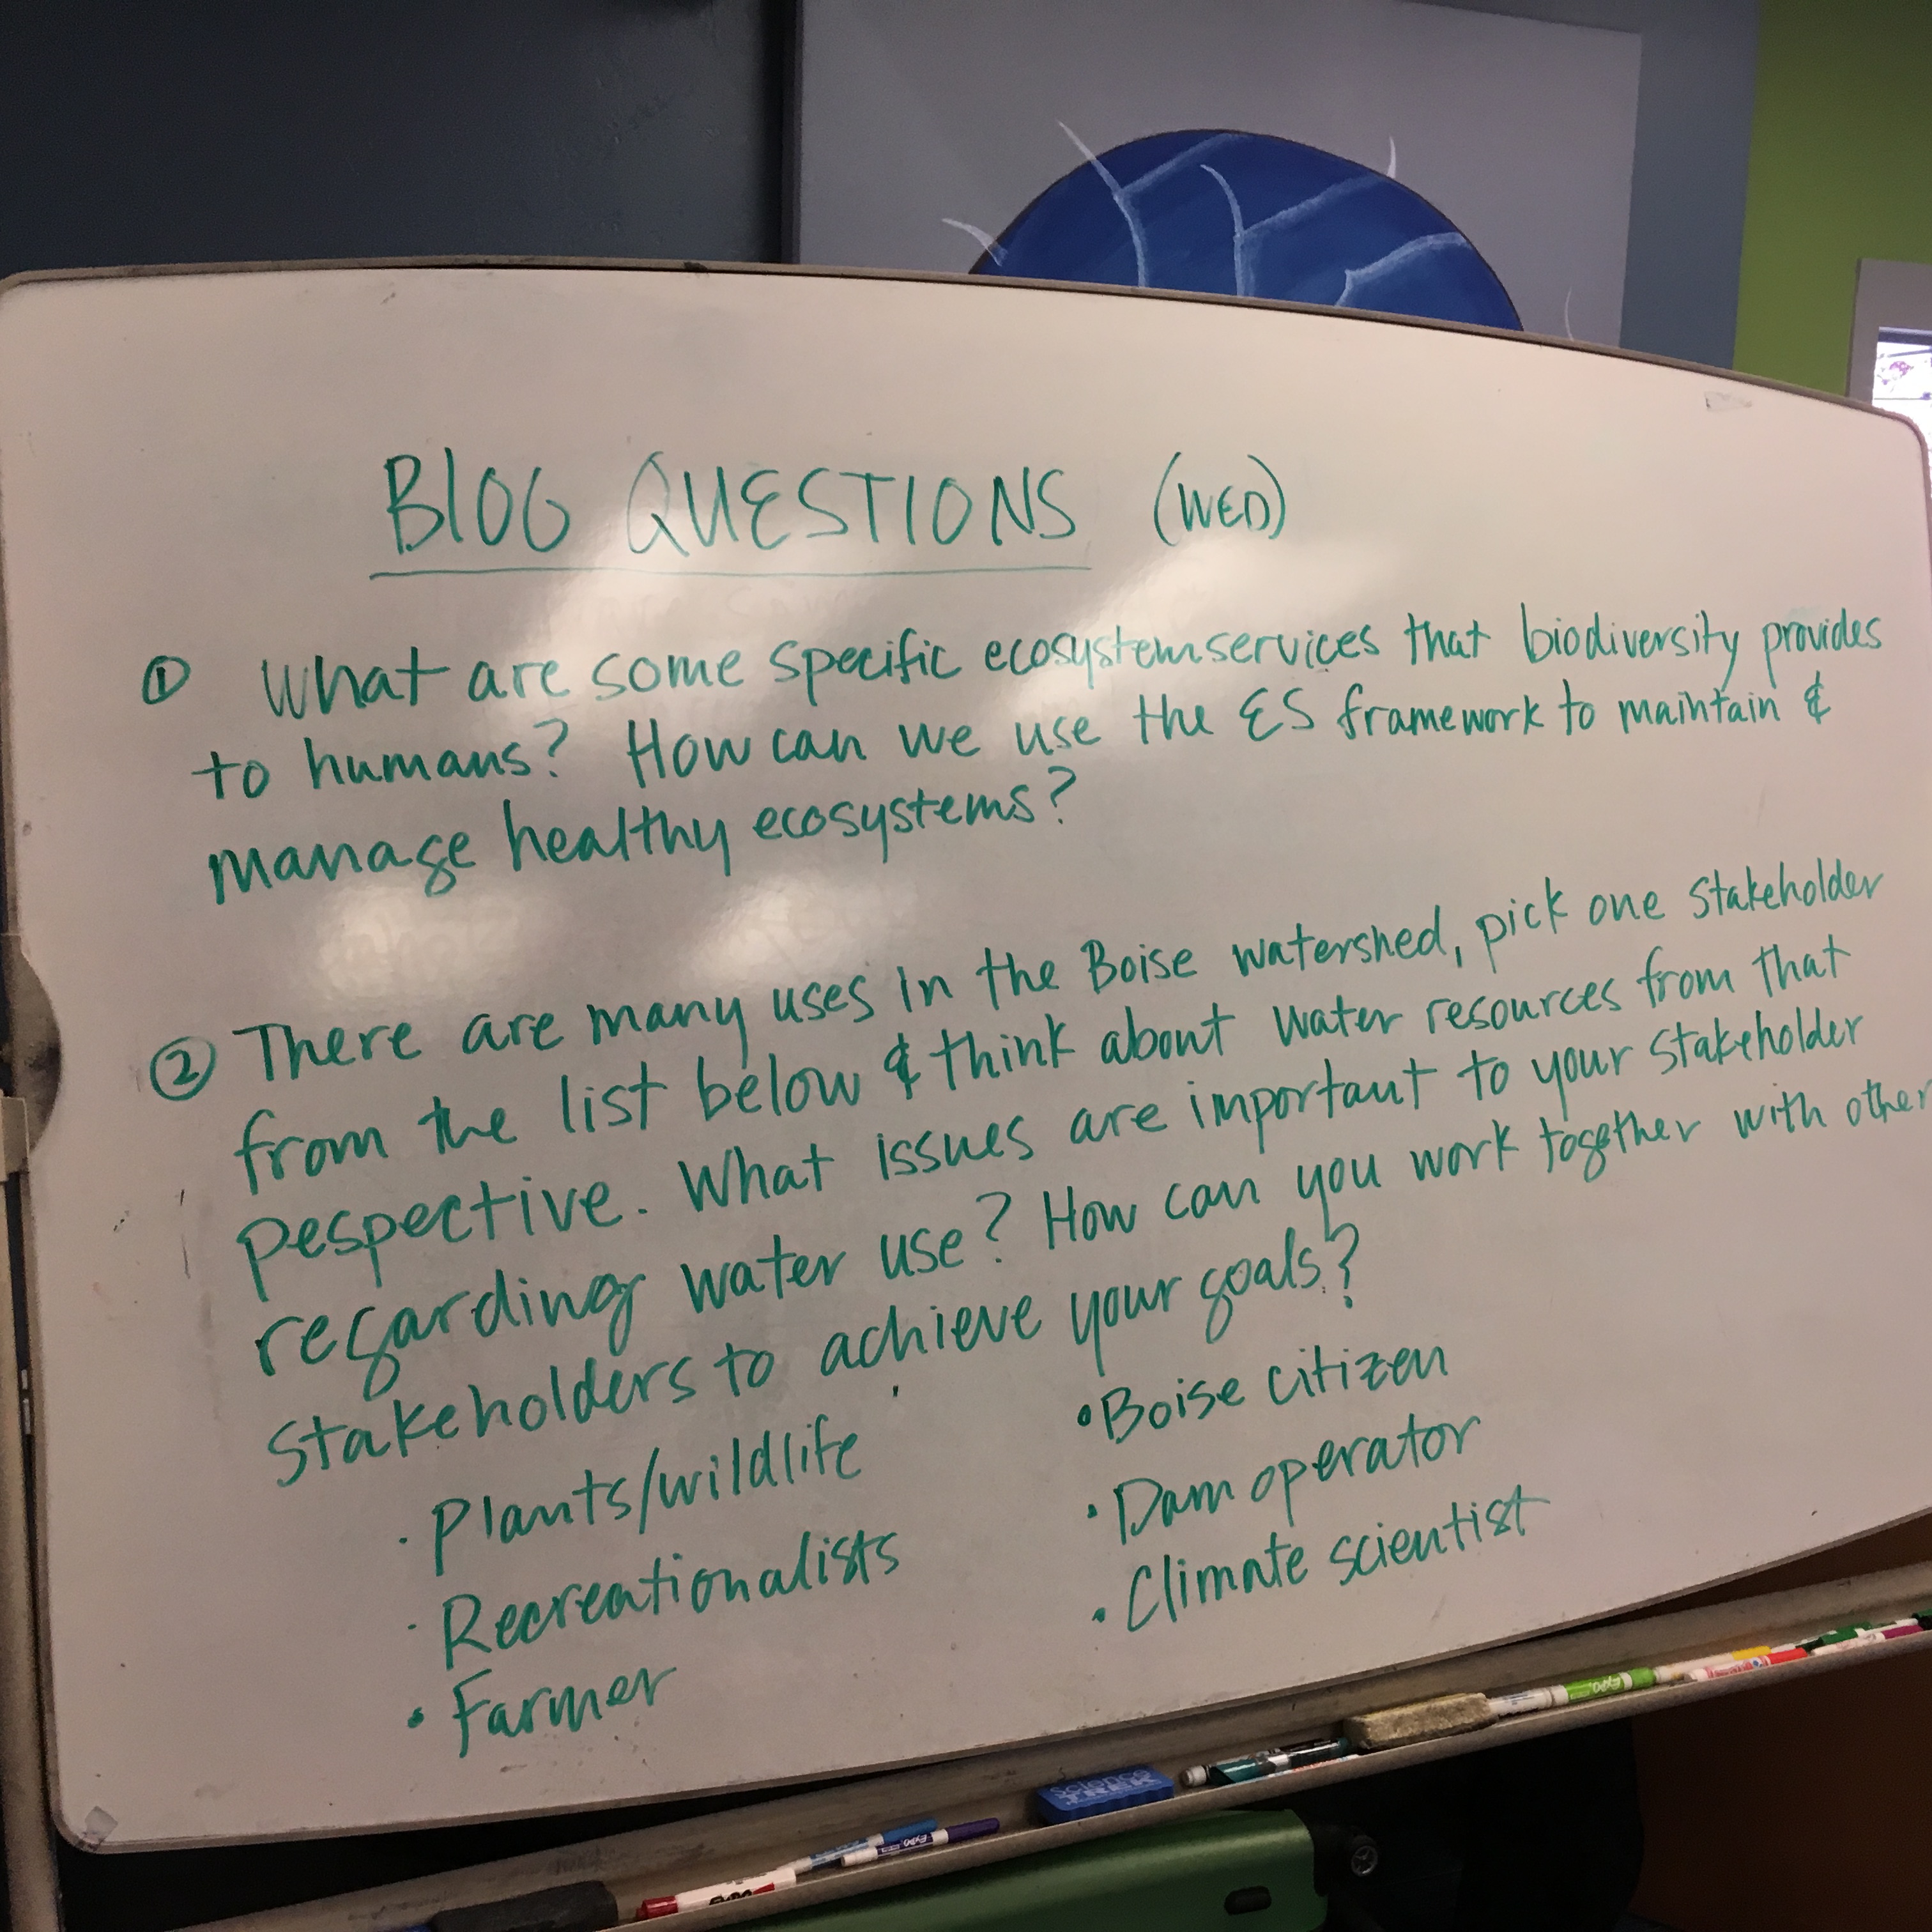 BlOG QUESTIONS (WED)
① What are some specific ecosystem services that biodiversity provides
to humans? How can we use the ES framework to maintain &
manage healthy ecosystems?
② There are many uses in the Boise watershed, pick one stakeholder
from the list below & think about water resources from that
pespective. What issues are important to your stakeholder
regarding water use? How can you work together with other
stakeholders to achieve your goals?
· Plants/wildlife
· Recreationalists
· Farmer
· Boise citizen
· Dam operator
· Climate scientist
science
TREK
EXPO
EXPO
EXPO